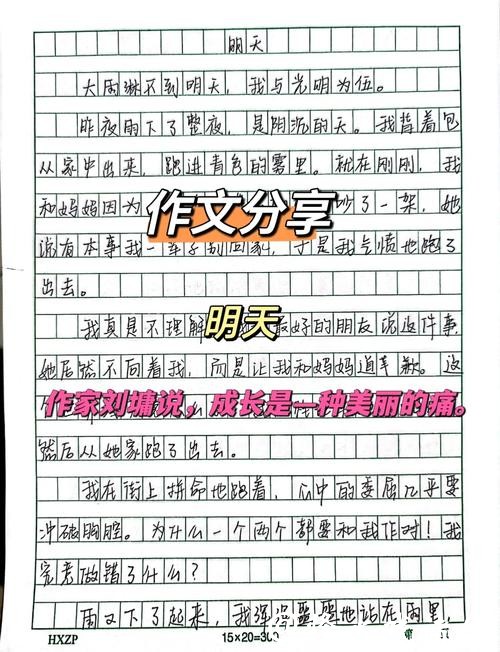 明天
大雨淋不到明天，我与光明为伍。
昨夜雨下了整夜，是阴沉的天。我背着包
从家中出来，跑进青色的雾里。就在刚刚，我
和妈妈因为
吵了一架，她
作文分享
说有本事我一辈子别回家，于是我气愤地跑了
出去。
我真是不理解
最好的朋友说这件事，
明天
她居然不向着我，而是让我和妈妈道歉。这
作家刘墉说，成长是一种美丽的痛。
然后从她家跑了出去。
我在街上拼命地跑着，心中的委屈几乎要
冲破胸腔。为什么一个两个都要和我作对！我
究竟做错了什么？
雨又下了起来，我浑浑噩噩地站在雨里，
HXZP
15×20=300